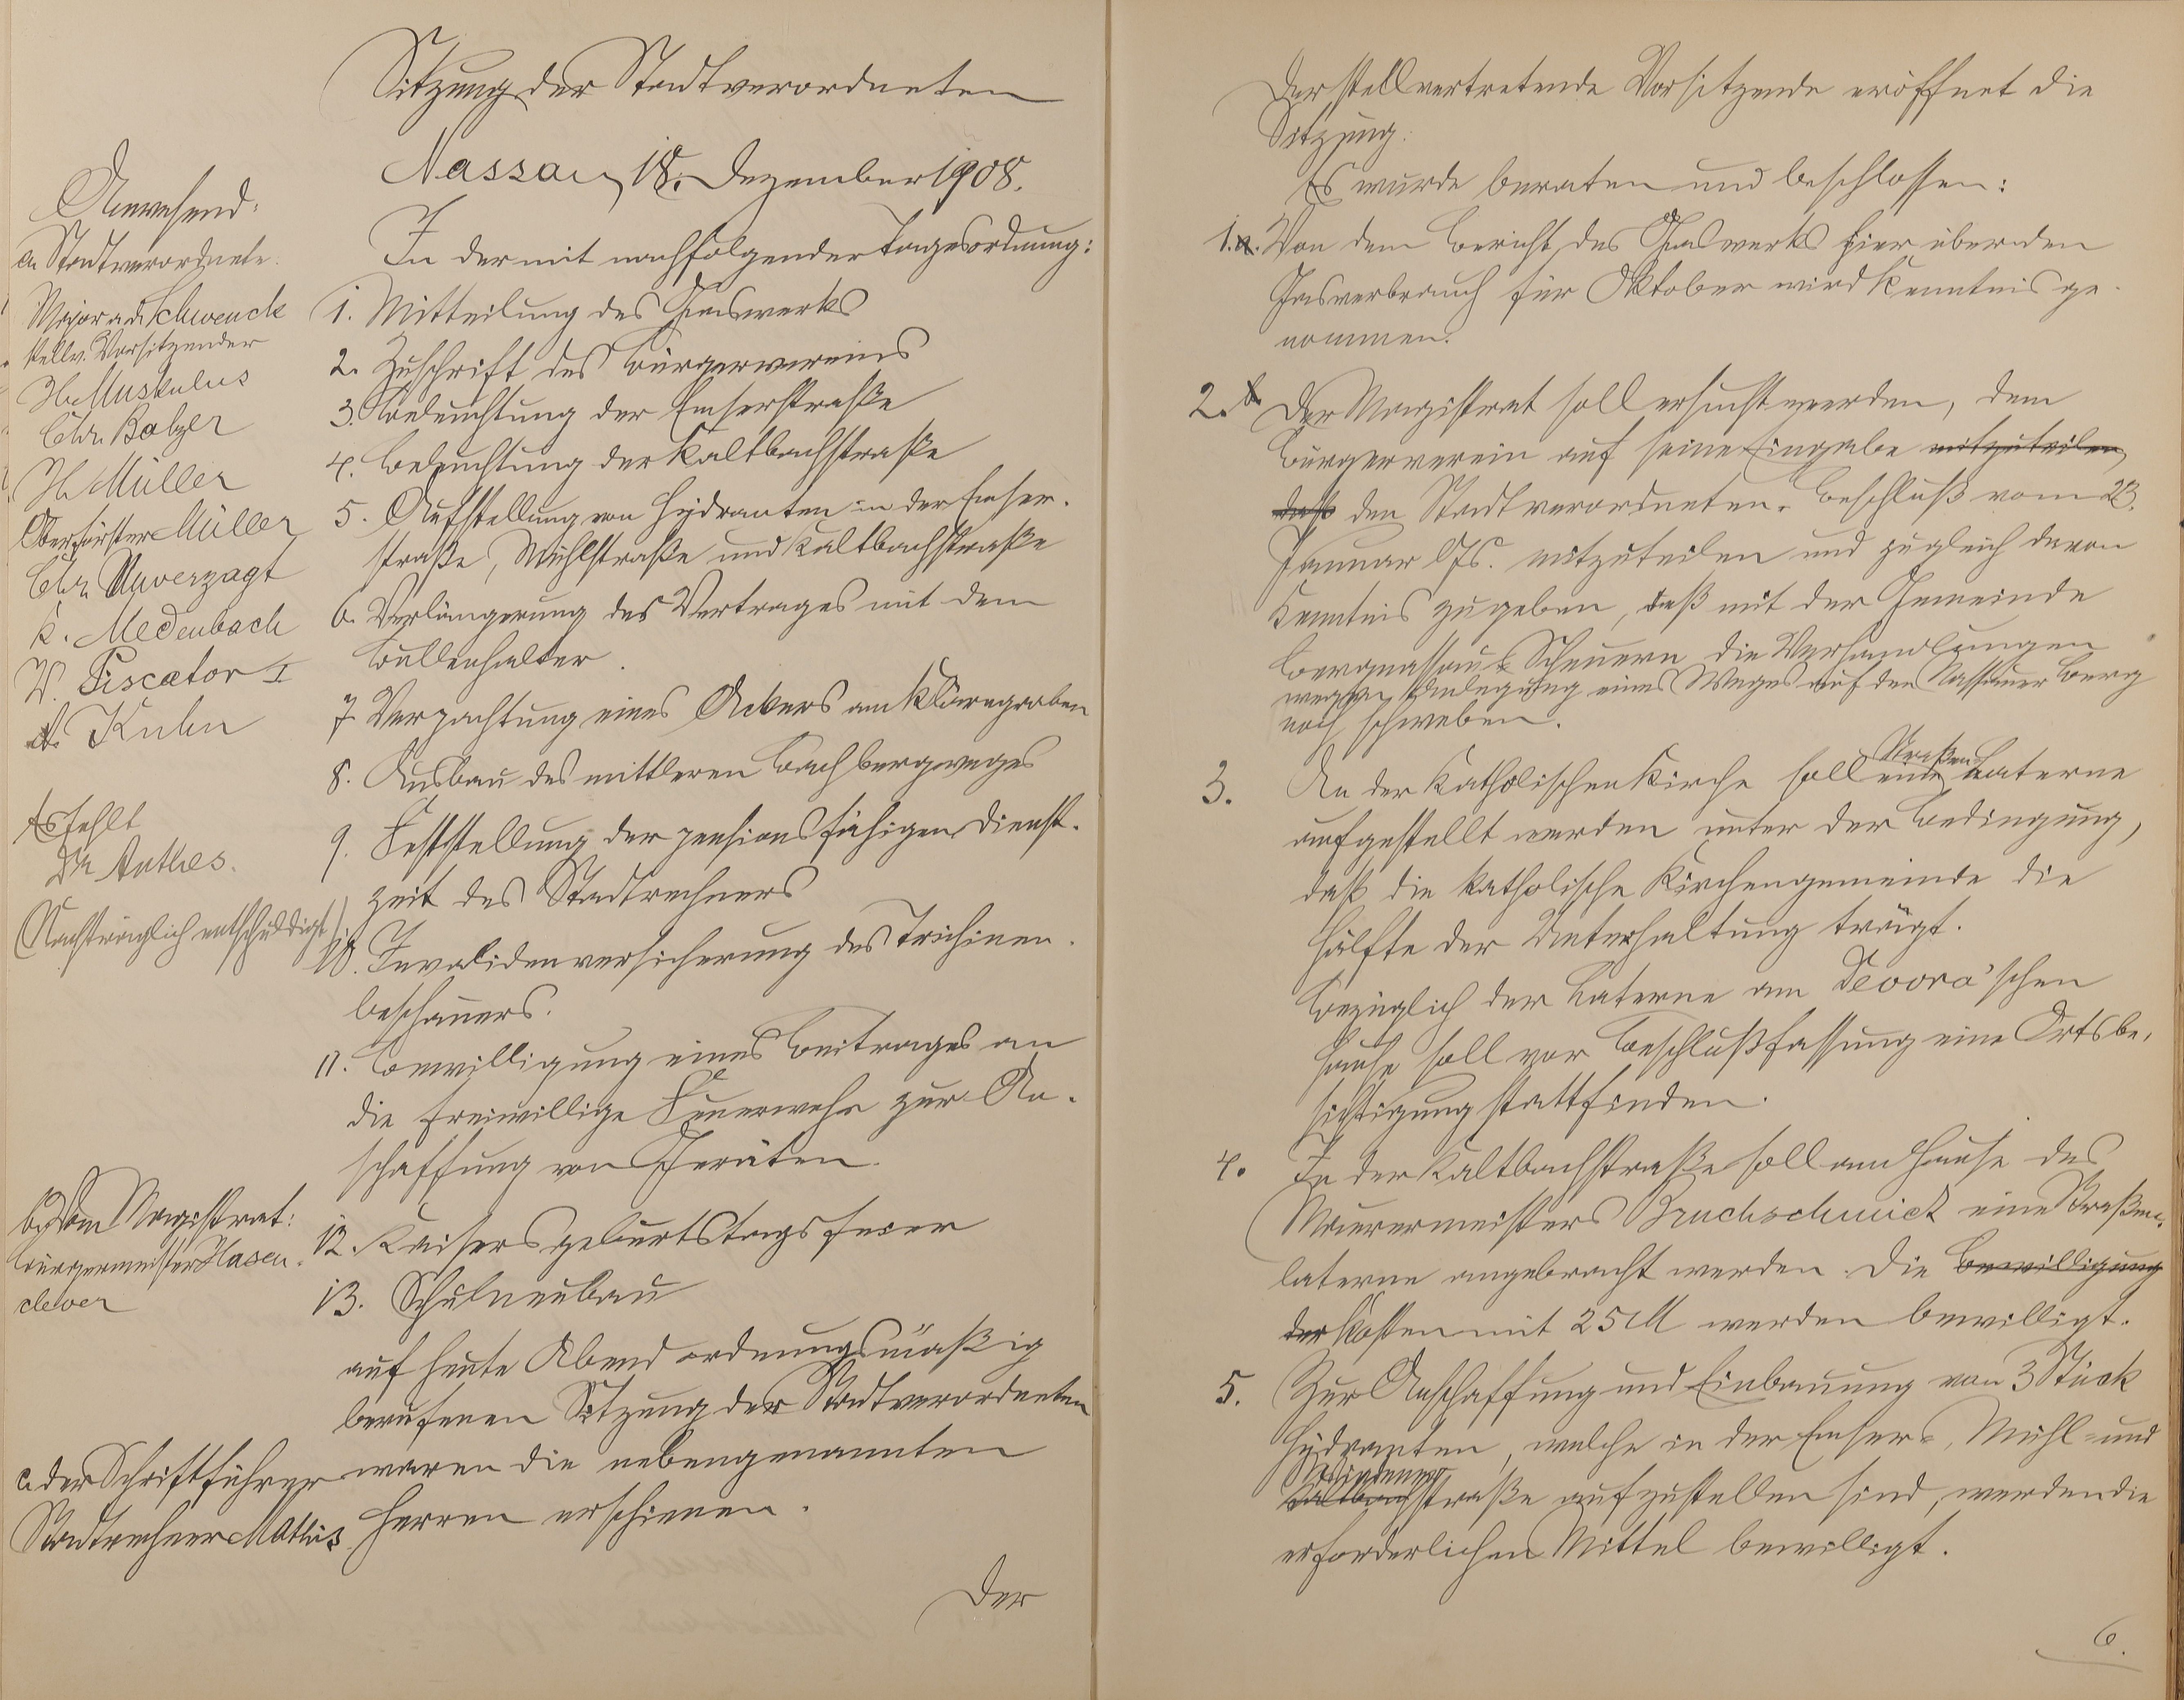 Sitzung der Stadtverordneten
Nassau, 18. Dezember 1908.
Anwesend:
a. Stadtverordnete.
Major a.D. Schwenck
stellv. Vorsitzender
H. Muskulus
Chr. Balzer
H. Müller
Oberförster Müller
Chr. Unverzagt
K. Medenbach
W. Piscator I
A. Kuhn
Es fehlt
Dr. Anthes.
(Nachträglich entschuldigt)
b. vom Magistrat:
Bürgermeister Hasen-
clever
c. der Schriftführer
Stadtrechner Mathis
In der mit nachfolgender Tagesordnung:
1. Mitteilung des Gaswerks
2. Zuschrift des Bürgervereins
3. Beleuchtung der Emserstraße
4. Beleuchtung der Kaltbachstraße
5. Aufstellung von Hydranten in der Emser-
straße, Mühlstraße und Kaltbachstraße
6. Verlängerung des Vertrages mit dem
Bullenhalter.
7. Verpachtung eines Ackers am Klärgraben
8. Ausbau des mittleren Bachbergweges
9. Feststellung der pensionsfähigen Dienst-
zeit des Stadtrechners
10. Invalidenversicherung des Trichinen-
beschauers.
11. Bewilligung eines Beitrages an
die freiwillige Feuerwehr zur An-
schaffung von Geräten.
12. Kaisersgeburtstagsfeier
13. Schulneubau
auf heute Abend ordnungsmäßig
berufenen Sitzung der Stadtverordneten
waren die nebengenannten
Herren erschienen.
Der
Der stellvertretende Vorsitzende eröffnet die
Sitzung.
Es wurde beraten und beschlossen:
1. a. Von dem Bericht des Gaswerks hier über den
Gasverbrauch für Oktober wird Kenntnis ge-
nommen.
2. b. Der Magistrat soll ersucht werden, dem
Bürgerverein auf seine Eingabe mitzuteilen,
daß den Stadtverordneten-Beschluß vom 23.
Januar ds. Js. mitzuteilen und zugleich davon
Kenntnis zu geben, daß mit der Gemeinde
Bergnassau-Scheuern die Verhandlungen
wegen Anlegung eines Weges auf den Nassauer Berg
noch schweben.
3. An der katholischen Kirche soll eine Straßen-Laterne
aufgestellt werden unter der Bedingung,
daß die katholische Kirchengemeinde die
Hälfte der Unterhaltung trägt.
Bezüglich der Laterne am Devora'schen
Hause soll vor Beschlußfassung eine Ortsbe-
sichtigung stattfinden.
4. In der Kaltbachstraße soll am Hause des
Maurermeisters Bruchschmidt eine Straßen-
laterne angebracht werden. Die Bewilligung
der Kosten mit 25 M werden bewilligt.
5. Zur Anschaffung und Einbauung von 3 Stück
Hydranten, welche in der Emser-, Mühl- und
Kaltbachstraße aufzustellen sind, werden die
erforderlichen Mittel bewilligt.
6.